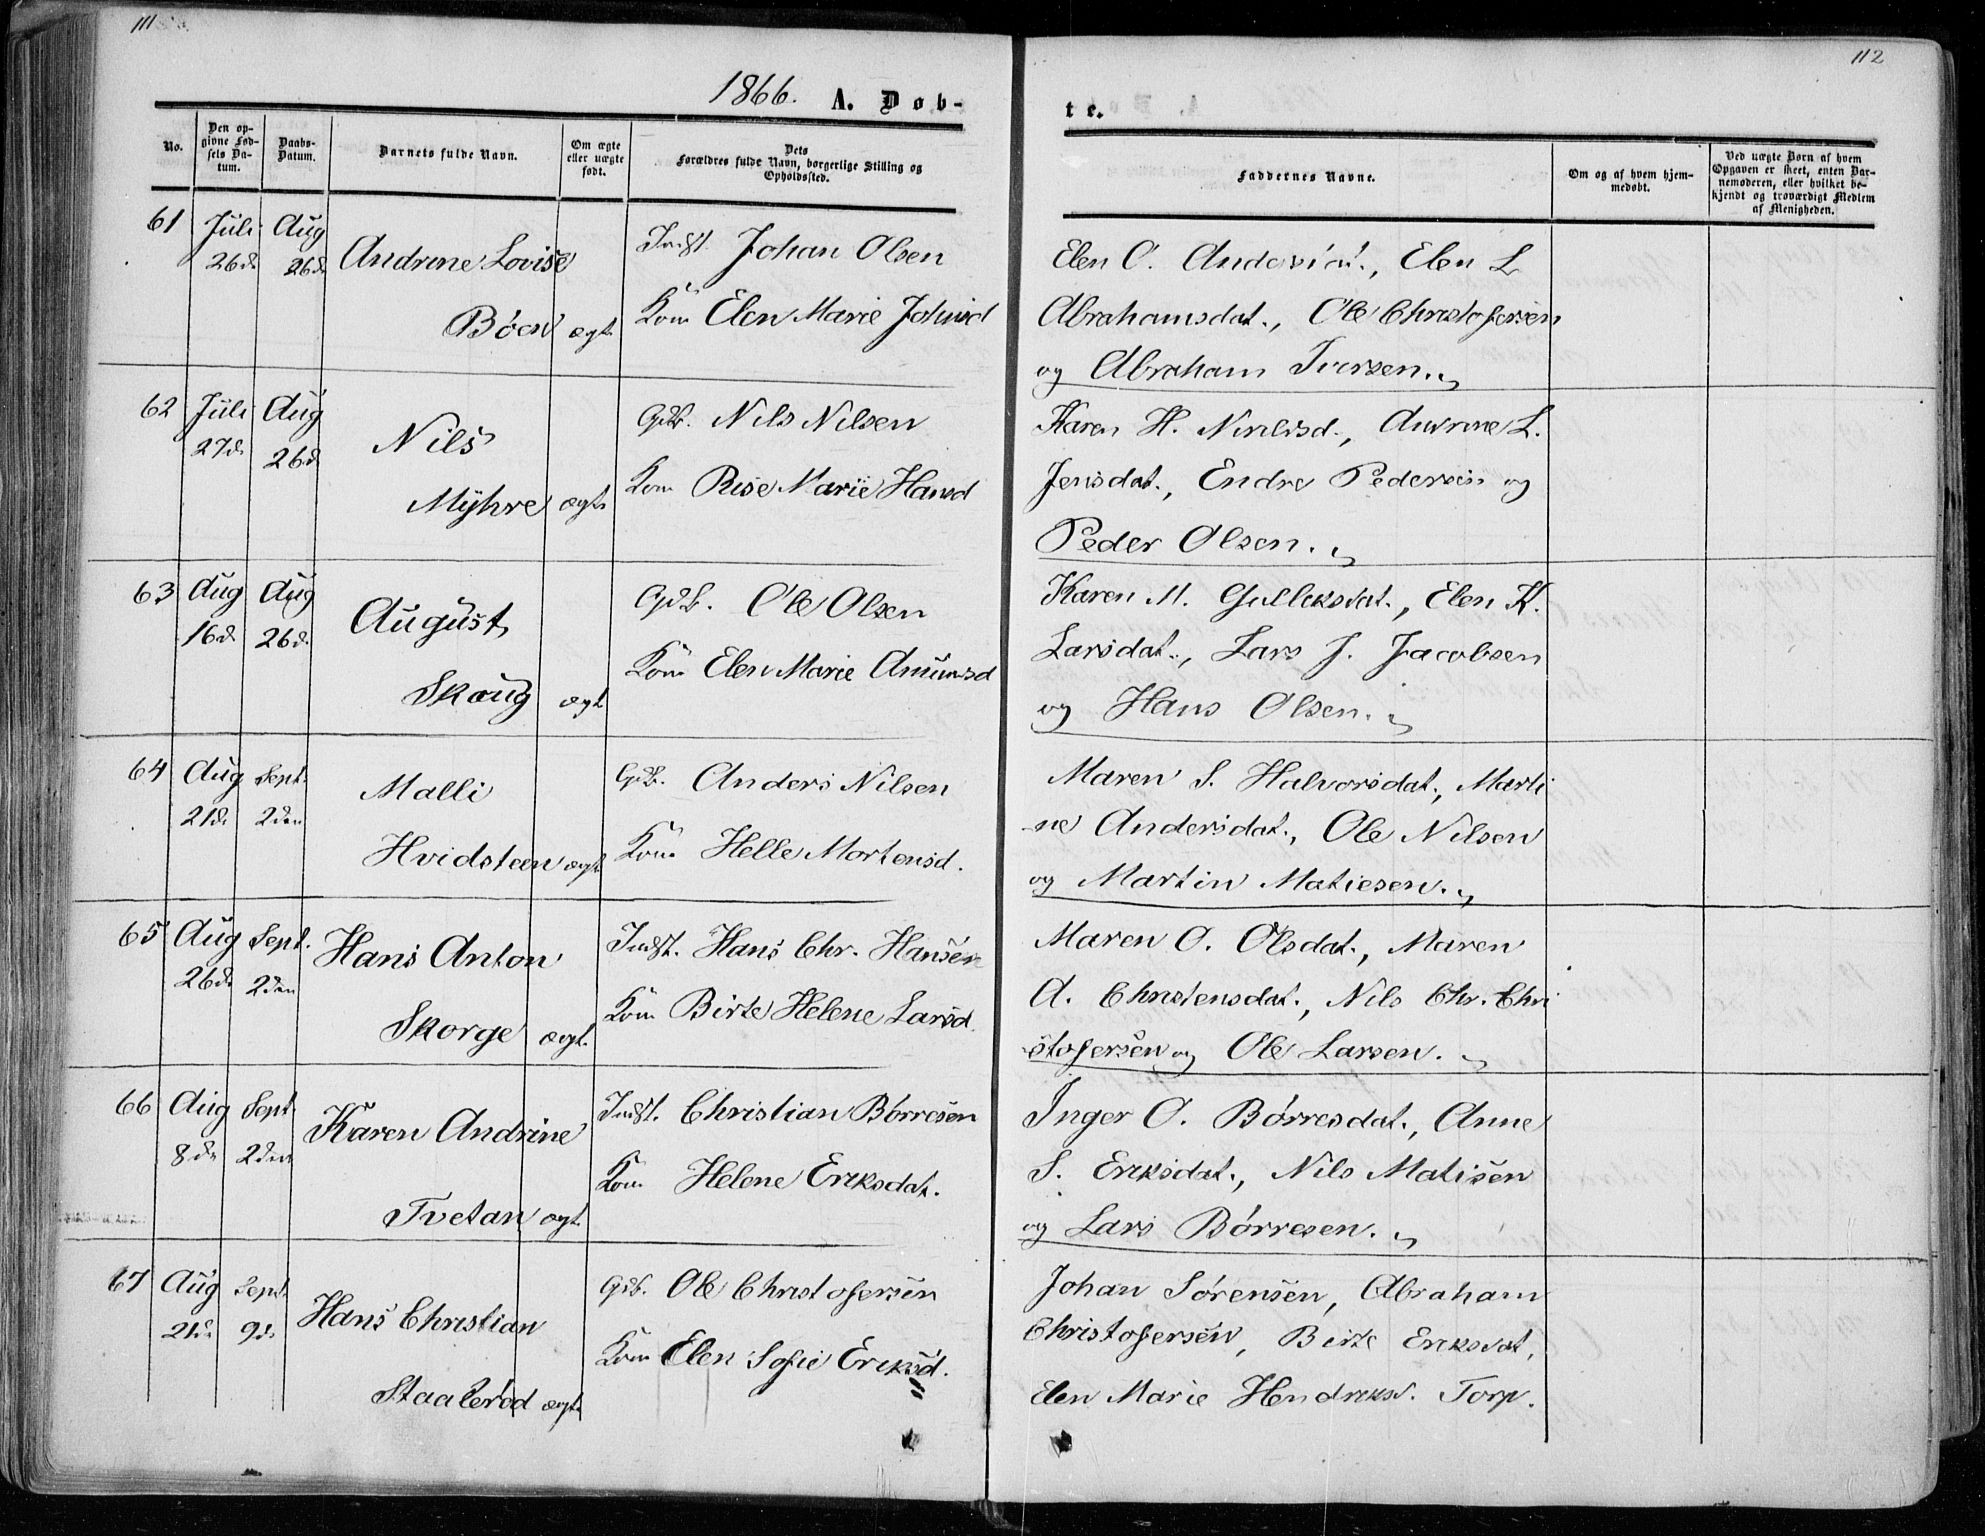 111
112
1866. A. Døb-
te.
No.
Den op-
givne Fød-
sels Da-
tum.
Daabs-
Datum.
Barnets fulde Navn.
Om ægte
eller uægte
født.
Dets
Forældres fulde Navn, borgerlige Stilling og
Opholdssted.
Faddernes Navne.
Om og af hvem hjem-
medøbt.
Ved uægte Børn af hvem
Opgaven er skeet, enten Bar-
nemoderen, eller hvilket be-
kjendt og troværdigt Medlem
af Menigheden.
61 Juli Aug
26d. 26d. Andrine Lovise
Böen ægt.
Indst. Johan Olsen
Kone Elen Marie Johnsd
Elen O. Elen L
Abrahamsdat., Ole Christofersen
og Abraham Iversen.
62 Juli Aug
27d. 26d Nils
Myhre ægt.
Gdb. Nils Nilsen
Kone Marie Hansd
Karen H. Andrine L.
Jensdat., Endre Pedersen og
Peder Olsen.
63 Aug Aug
16d. 26d. August
Skoug ægt
Gdb. Ole Olsen
Kone Elen Marie Amunsd
Karen M. Gulleksdat., Elen K.
Larsdat., Lars J. Jacobsen
og Hans Olsen.
64 Aug Sept.
21d. 2den Malli
Hvidsteen ægt
Gdb. Anders Nilsen
Kone Helle Mortensd.
Maren S. Halvorsdat., Marti
-ne Andersdat., Ole Nilsen
og Martin Matiesen.
65 Aug Sept.
26d. 2den Hans Anton
Skorge ægt.
Indst. Hans Chr. Hansen
Kone Birte Helene Larsd.
Maren O. Olsdat., Maren
A. Christensdat., Nils Chr. Chri
stofersen og Ole Larsen.
66 Aug Sept
8de 2den Karen Andrine
Tvetan ægt.
Indst. Christian Börresen
Kone Helene Eriksdat.
Inger O. Börresdat., Anne
S. Eriksdat., Nils Matisen
og Lars Börresen.
67 Aug Sept.
21de 9d. Hans Christian
Staaleröd ægt.
Gdb. Ole Christofersen
Kone Elen Sofie Eriksd.
Johan Sörensen, Abraham
Christofersen, Birte Eriksdat,
Elen Marie Hendriksd. Torp.